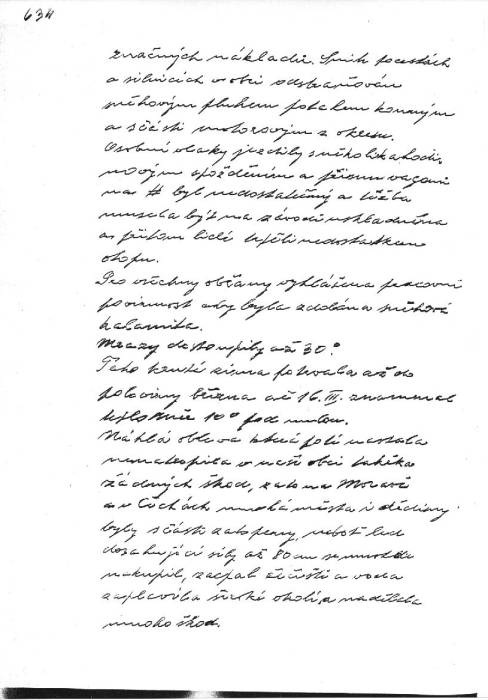 634
značných nákladů. Sníh po cestách
a silnicích v obci odstraňován
sněhovým pluhem potahem konným
a sčásti motorovým z okresu.
Osobní vlaky jezdily s několikahodi-
novým zpožděním a přísun vagonů
na # byl nedostatečný a těžba
musela být na závodě uskladněna
a přitom lidé trpěli nedostatkem
otopu.
Pro všechny občany vyhlášena pracovní
povinnost aby byla zdolána sněhová
kalamita.
Mrazy dostoupily až 30°
Tato krutá zima potrvala až do
poloviny března ač 16. III. znamenal
teploměr 10° pod nulou.
Náhlá obleva která poté nastala
nenatropila v naší obci takřka
žádných škod, zato na Moravě
a v Čechách mnohá města i dědiny
byly sčásti zatopeny, neboť led
dosahující síly až 80 cm se
nakupil, zacpal řečiště a voda
zaplavila široké okolí, a nadělala
mnoho škod.